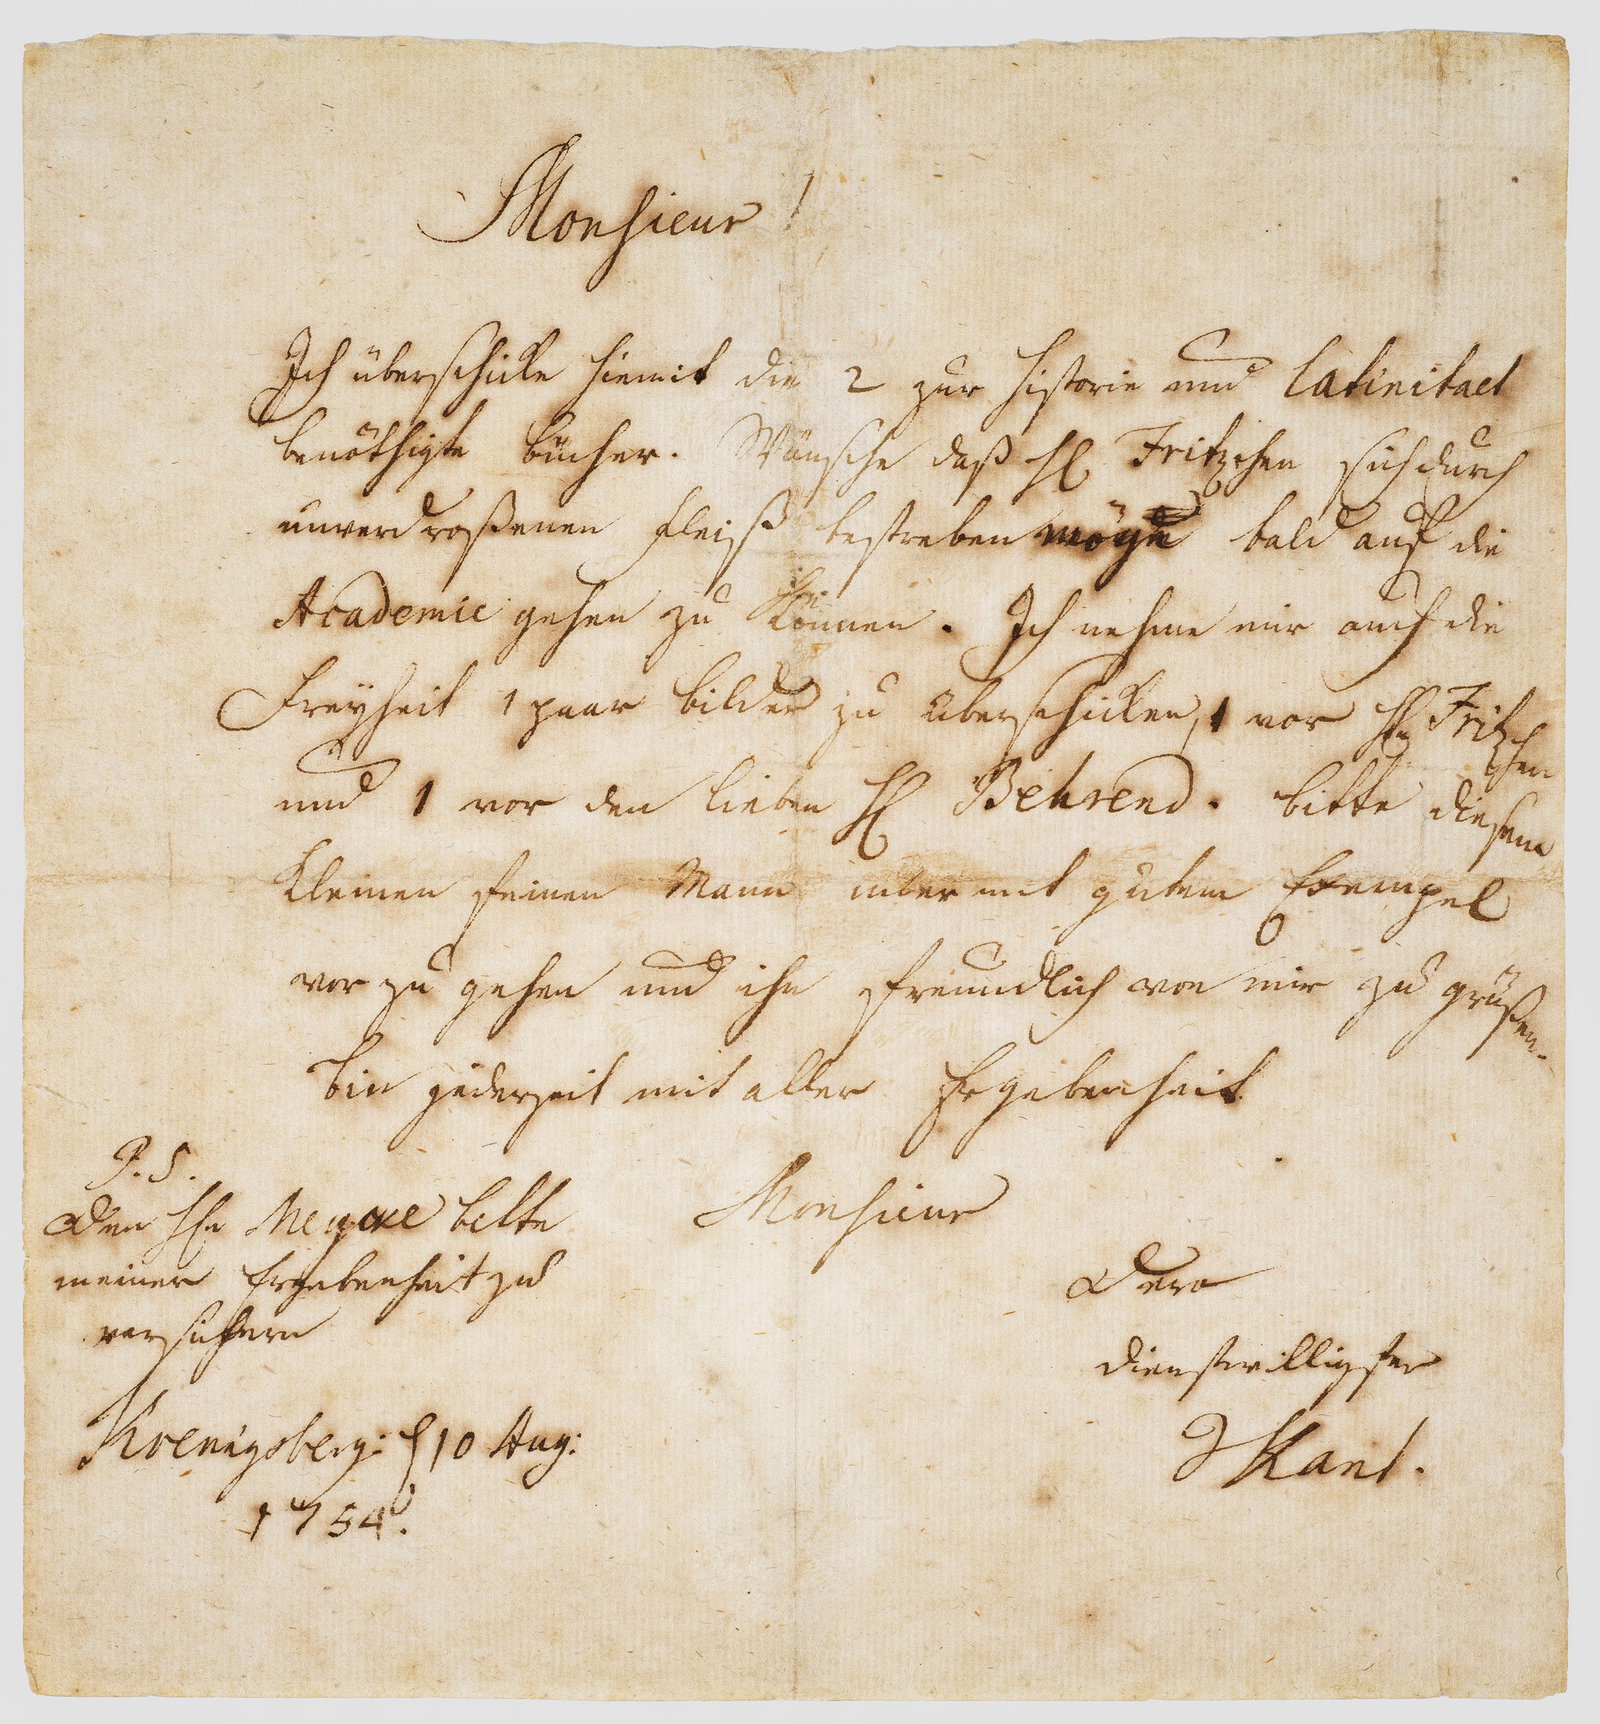 Monsieur!
Ich überschicke hiemit die 2 zur Historie und Latinitaet
benöthigte Bücher. Wünsche daß H Fritzchen sich durch
unverdroßenen Fleiß bestreben möge bald auf die
Academie gehen zu können. Ich nehme mir auch die
Freyheit 1 paar Bilder zu überschicken, 1 vor Hn Fritz
chen
und 1 vor den lieben H Behrend. Bitte diesem
kleinen feinen Mann mit gutem Exempel
vor zu gehen und ihn freundlich von mir zu grüßen.
Bin jederzeit mit aller Ergebenheit
Monsieur
P.S.
Den Hn bitte
meiner Ergebenheit zu
versichern
Dero
dienstwilligster
I Kant.
Koenigsberg: d 10 Aug:
1754.